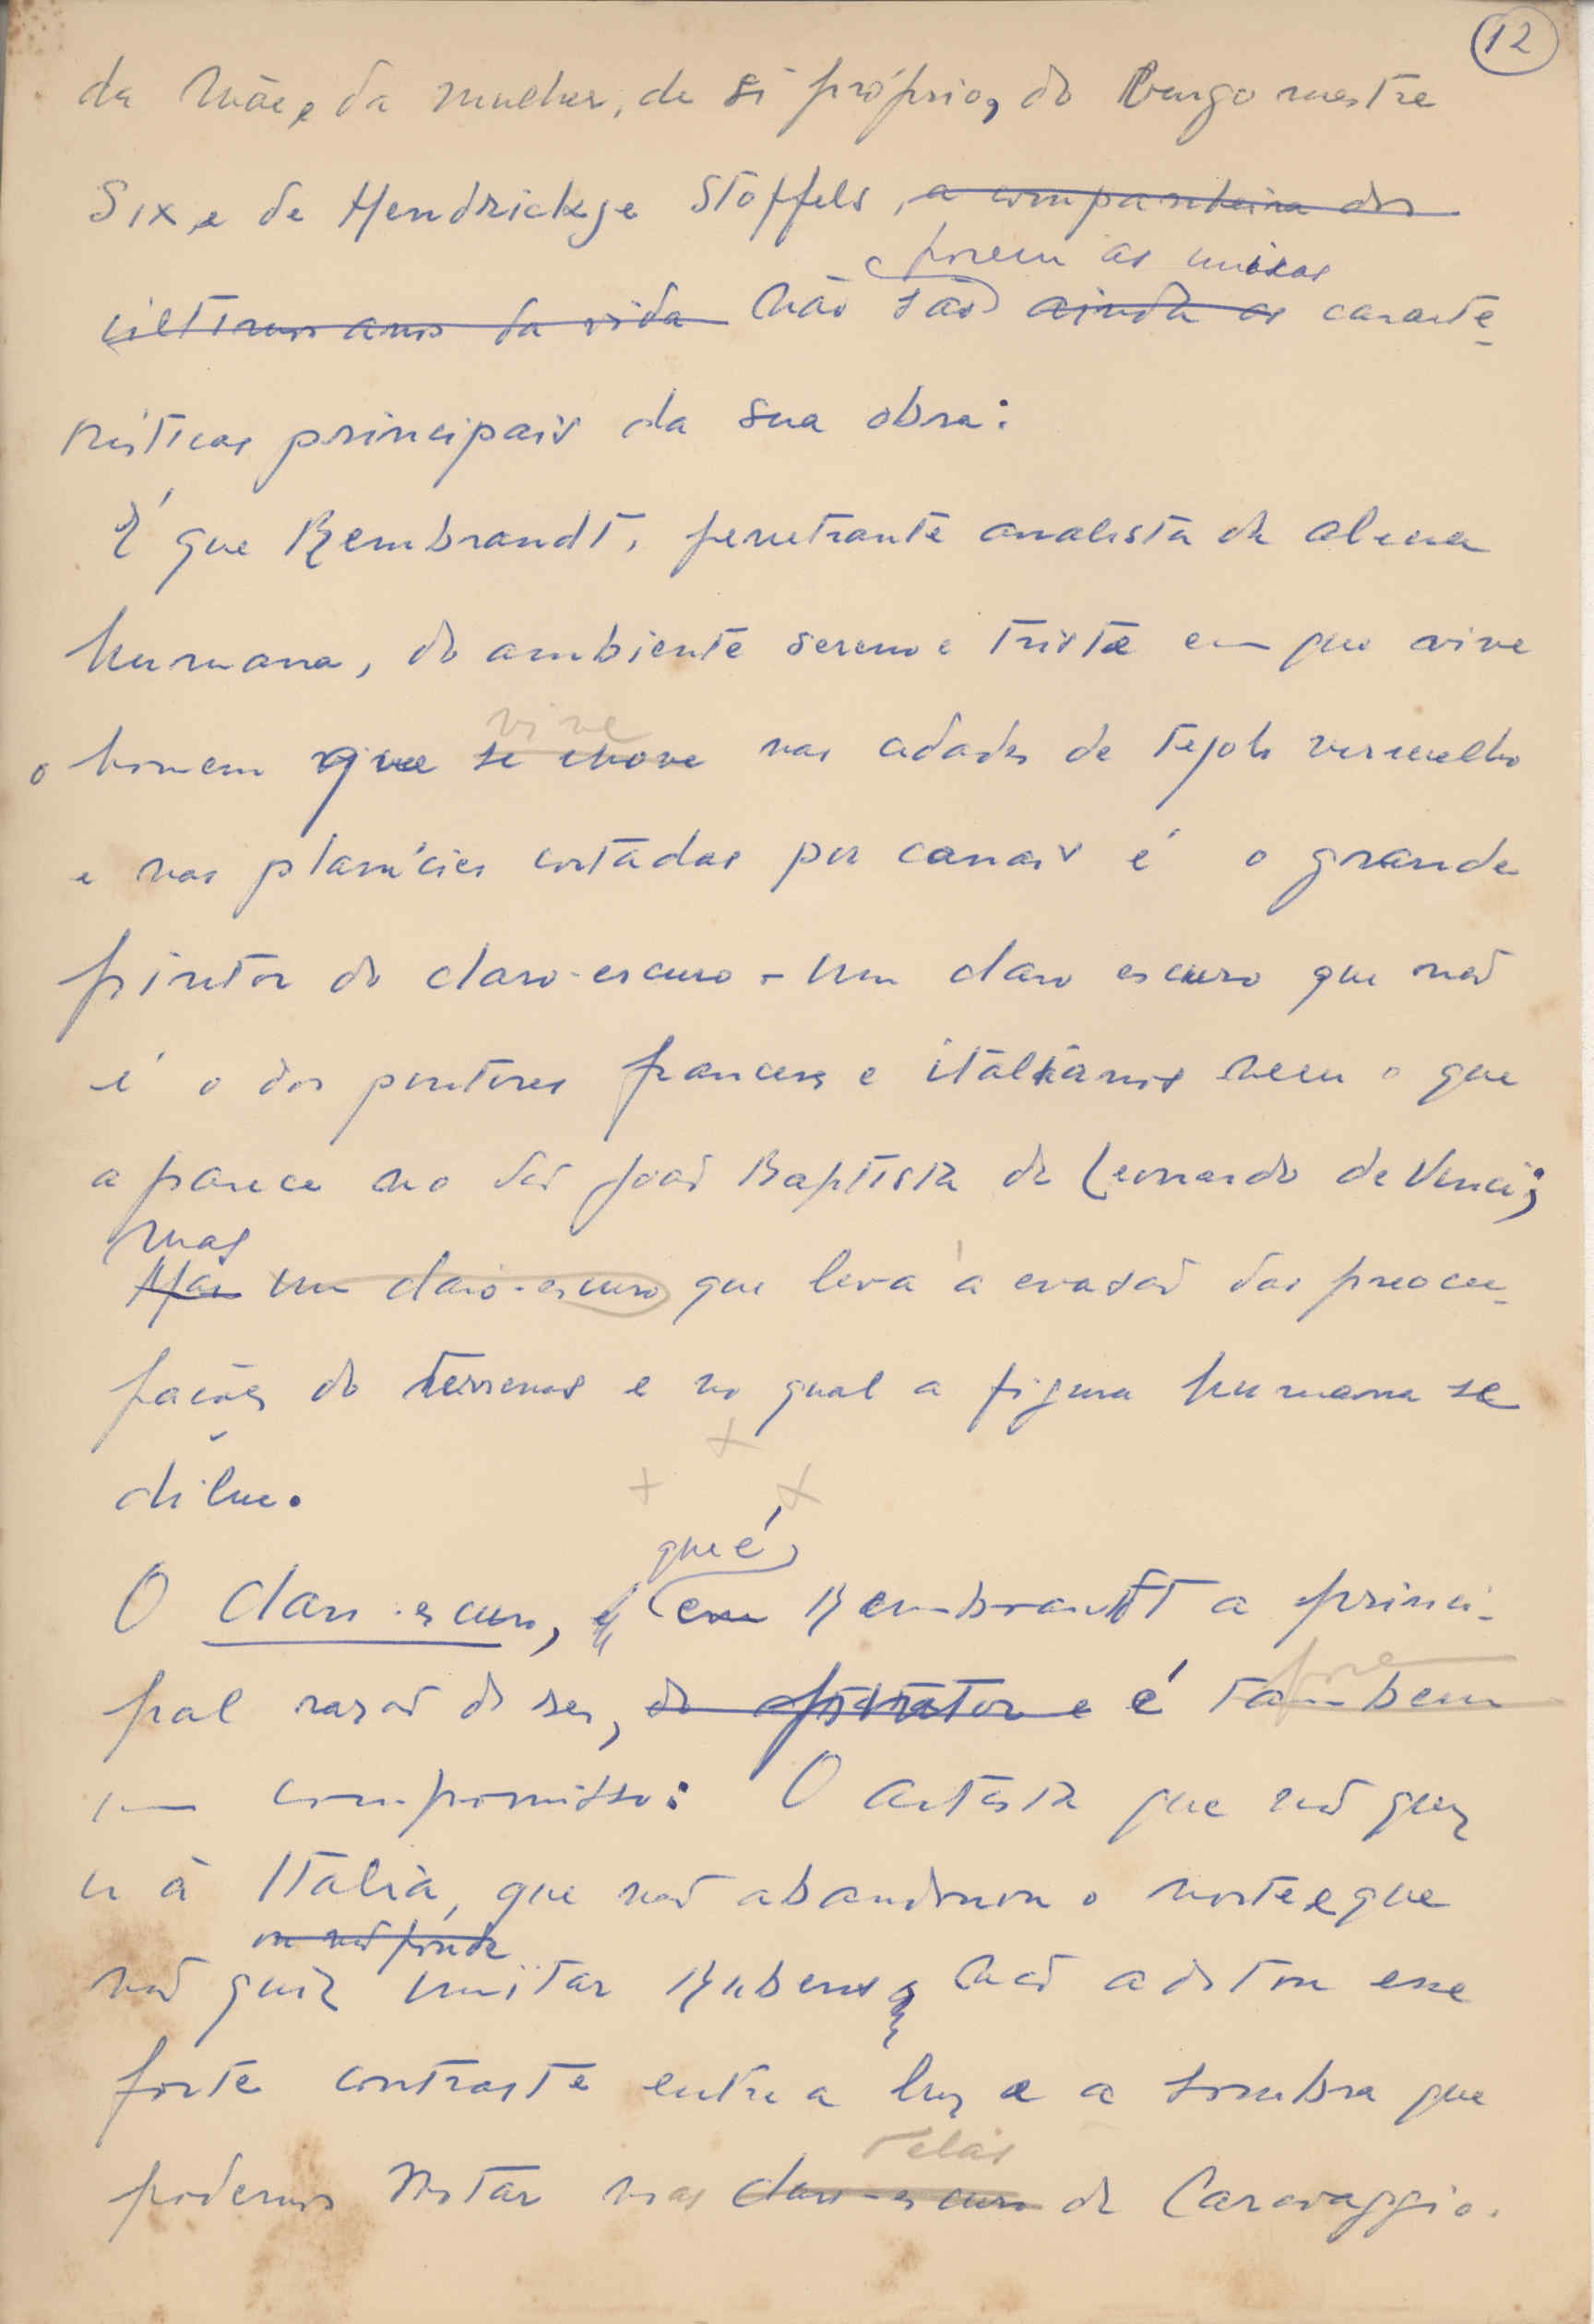 12
da Mãe, da mulher, de si próprio, do Burgo mestre
Six, e de Hendrickje Stoffels, a companheira dos
porem as unicas
ultimos anos da vida não são ainda as caracte-
rísticas principais da sua obra:
É que Rembrandt, penetrante analista da alma
humana, do ambiente sereno e triste em que vive
vive
o homem que se move nas cidades de tejolo vermelho
e nas planícies cortadas por canais é o grande
pintor do claro-escuro - um claro escuro que não
é o dos pintores franceses e italianos nem o que
aparece no São João Baptista de Leonardo de Vinci;
mas
Mas um claro-escuro que leva à evasão das preocu-
pações do terrenos e no qual a figura humana se
dilue.
que é,
O claro-escuro, em Rembrandt a princi-
pal razão de ser, do pintor e é tambem
um compromisso: O artista que não quiz
ir à Italia, que não abandonou o norte e que
ou não pôude
não quiz imitar Rubens, não adotou esse
forte contraste entre a luz e a sombra que
telas
podemos notar nas claro-escuro de Caravaggio.